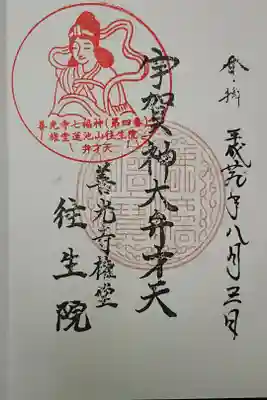 奉拝
平成年八月三日
宇賀神大弁才天
善光寺権堂
往生院
善光寺七福神(第四番)
権堂蓮池山往生院
弁才天